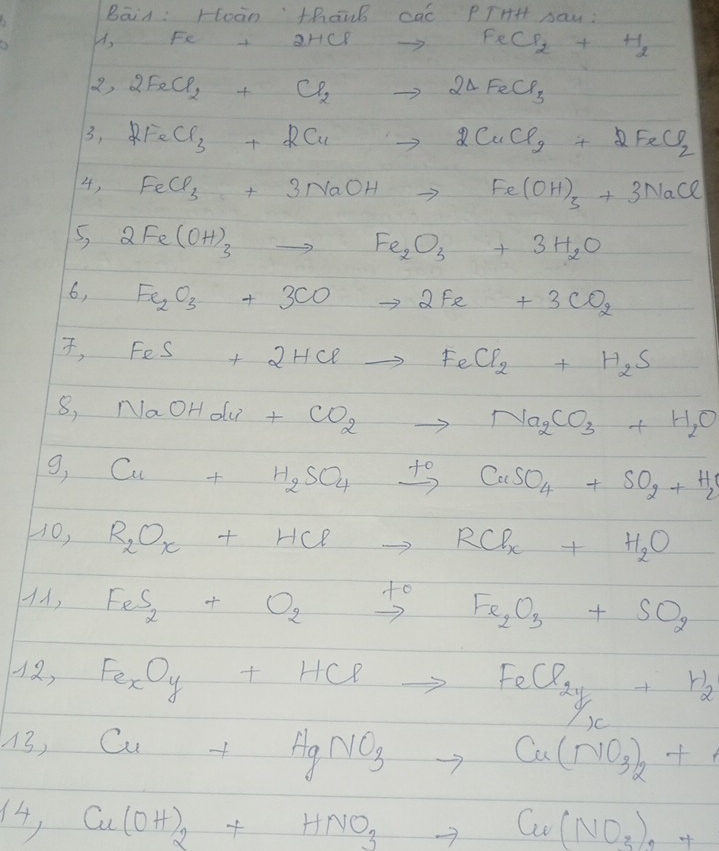 Bài 1: Hoàn thành các PTHH sau:
1, Fe + 2HCl → FeCl₂ + H₂
2, 2FeCl₂ + Cl₂ → 2 FeCl₃
3, 2FeCl₃ + Cu → CuCl₂ + 2FeCl₂
4, FeCl₃ + 3NaOH → Fe(OH)₃ + 3NaCl
5, 2Fe(OH)₃ → Fe₂O₃ + 3H₂O
6, Fe₂O₃ + 3CO → 2Fe + 3CO₂
7, FeS + 2HCl → FeCl₂ + H₂S
8, NaOH dư + CO₂ → Na₂CO₃ + H₂O
9, Cu + H₂SO₄ t° → CuSO₄ + SO₂ + H₂O
10, R₂Oₓ + HCl → RClₓ + H₂O
11, FeS₂ + O₂ t° → Fe₂O₃ + SO₂
12, FeₓOy + HCl → FeCl₂y/ₓ + H₂
13, Cu + AgNO₃ → Cu(NO₃)₂ +
14, Cu(OH)₂ + HNO₃ → Cu(NO₃)₂ +